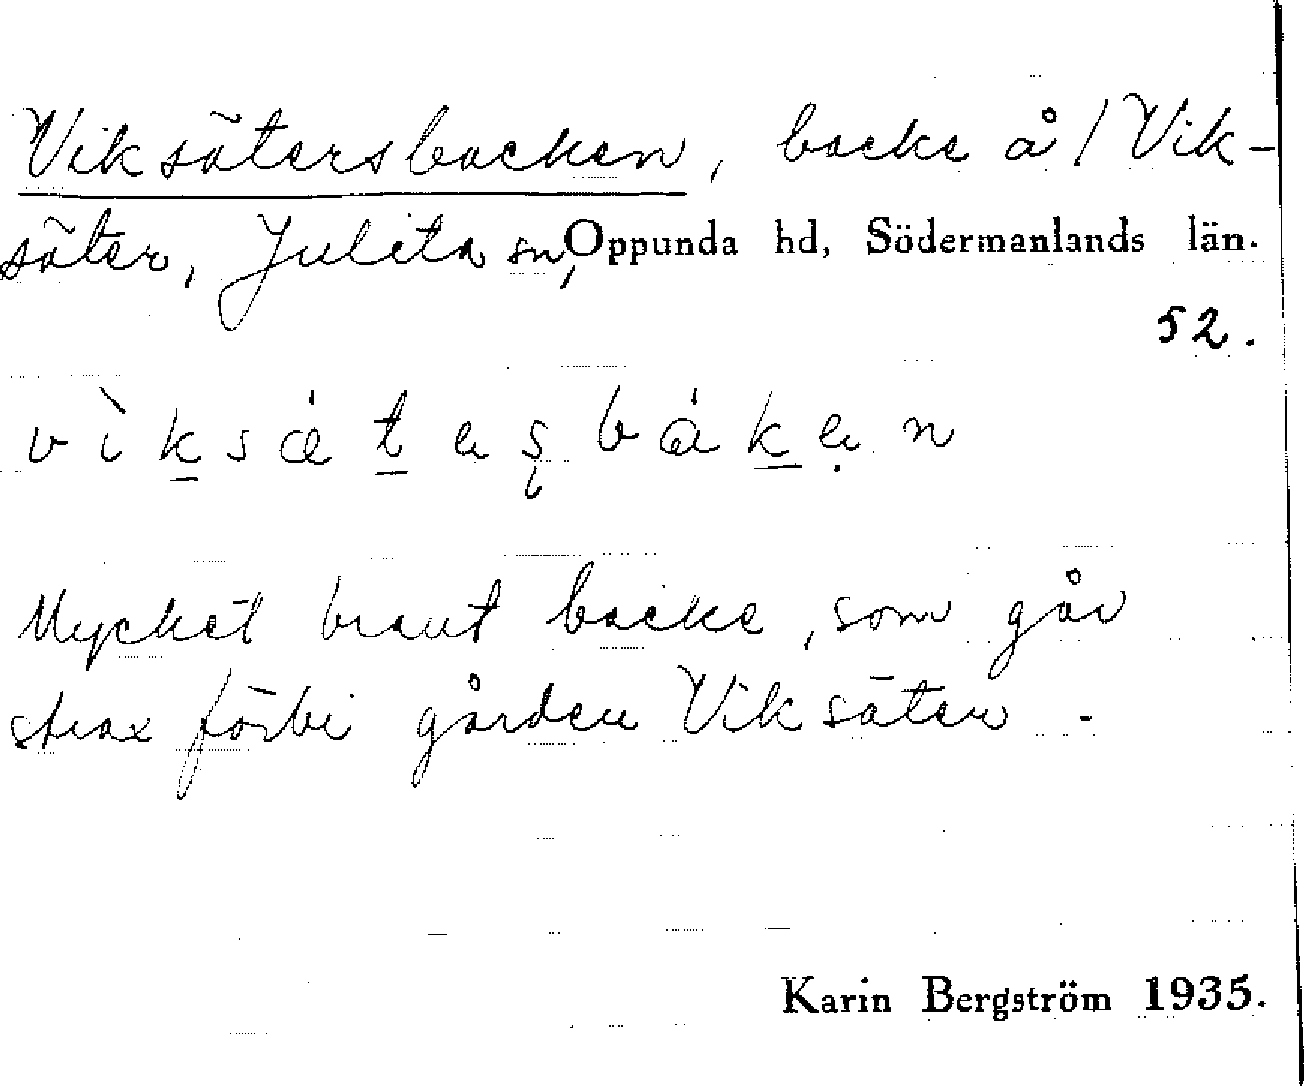 Viksätersbacken, backe å / Vik-
säter, Julita sn, Oppunda hd, Södermanlands län.
52.
vìksǽtesbákẹn
Mycket brant backe, som går
strax förbi gården Viksäter.
Karin Bergström 1935.